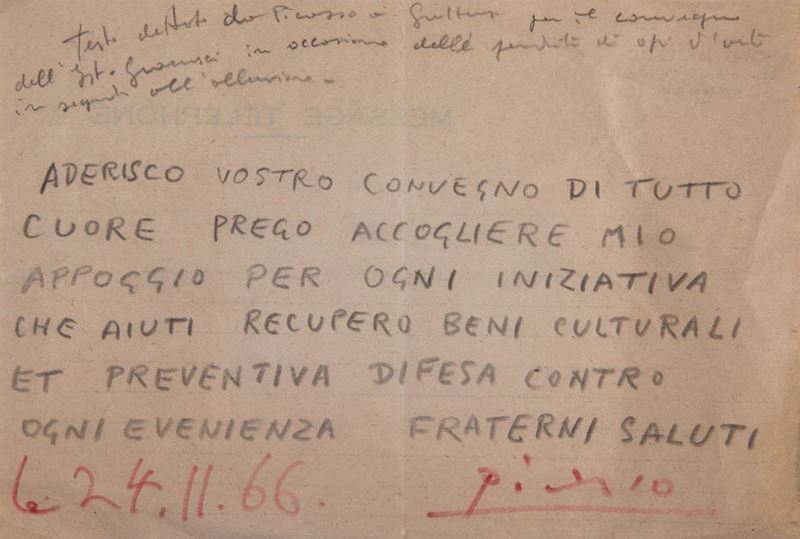 Testo dettato da Picasso a Guttuso per il convegno
dell'Ist. Gramsci in occasione delle perdite di op. d'arte
in seguito all'alluvione.
MESSAGE TÉLÉPHONÉ
ADERISCO VOSTRO CONVEGNO DI TUTTO
CUORE PREGO ACCOGLIERE MIO
APPOGGIO PER OGNI INIZIATIVA
CHE AIUTI RECUPERO BENI CULTURALI
ET PREVENTIVA DIFESA CONTRO
OGNI EVENIENZA FRATERNI SALUTI
le 24.11.66. Picasso